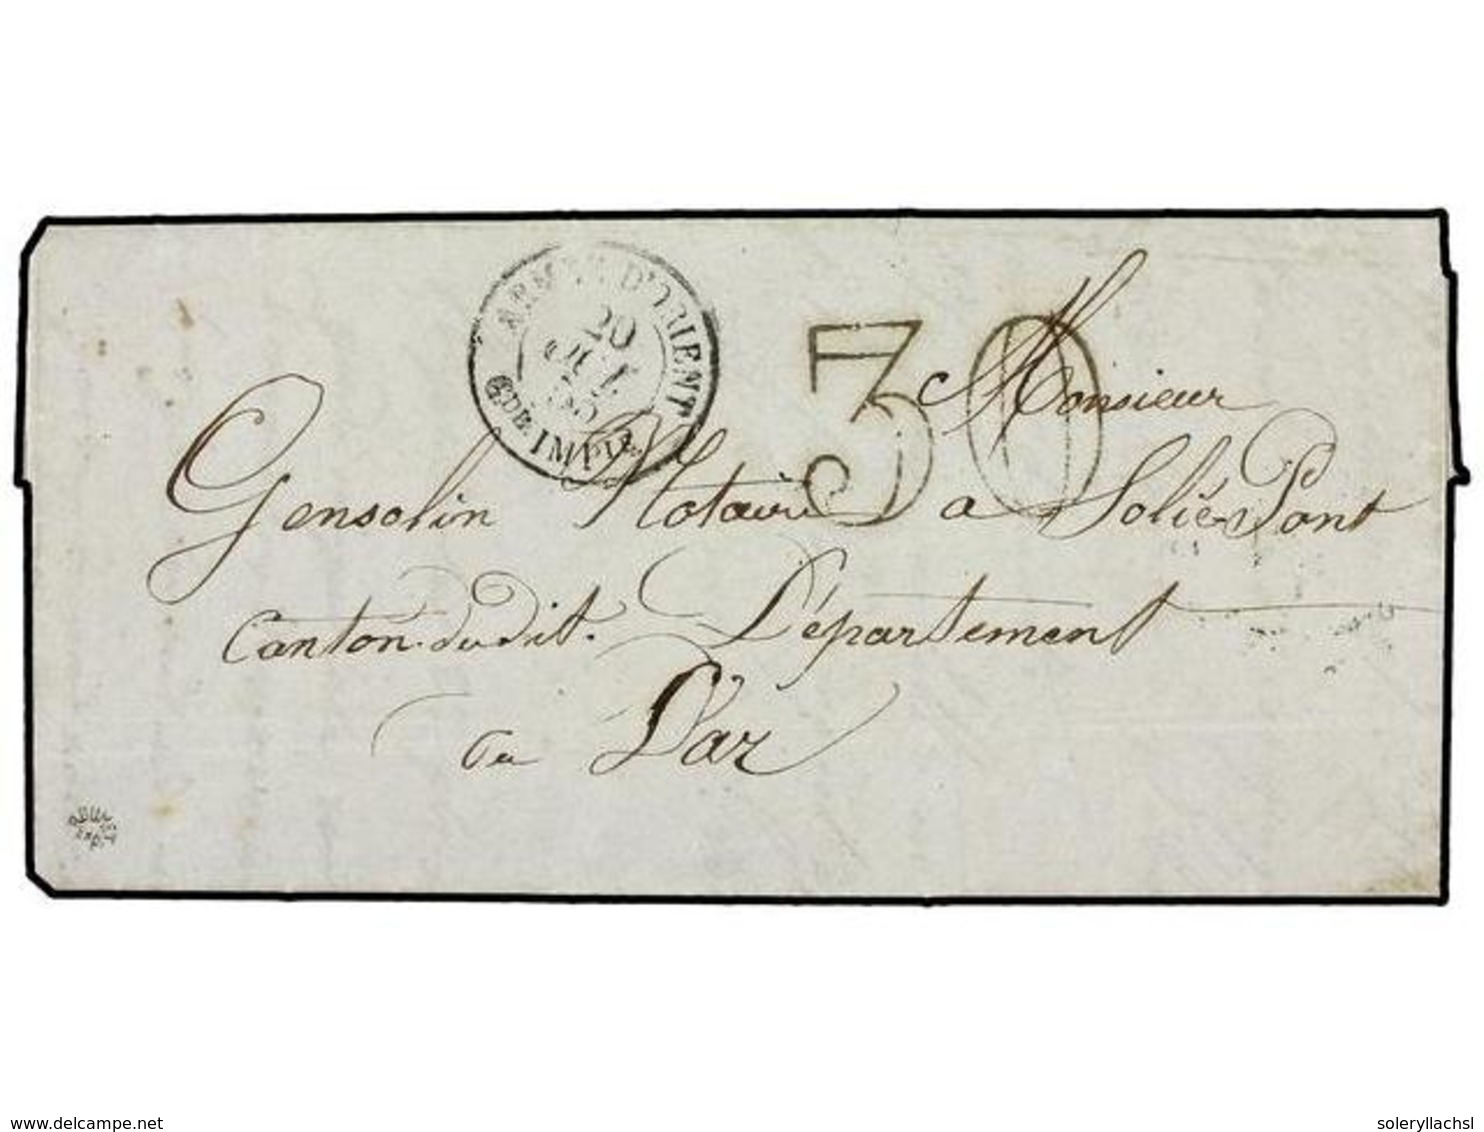 ARMÉE D'ORIENT
20
JUIL
55
GDE IMPLE
30
Monsieur
Gensolin Notaire a Solié-Pont
Canton. du dit. Département
du Var
www.delcampe.net
soleryllachsl